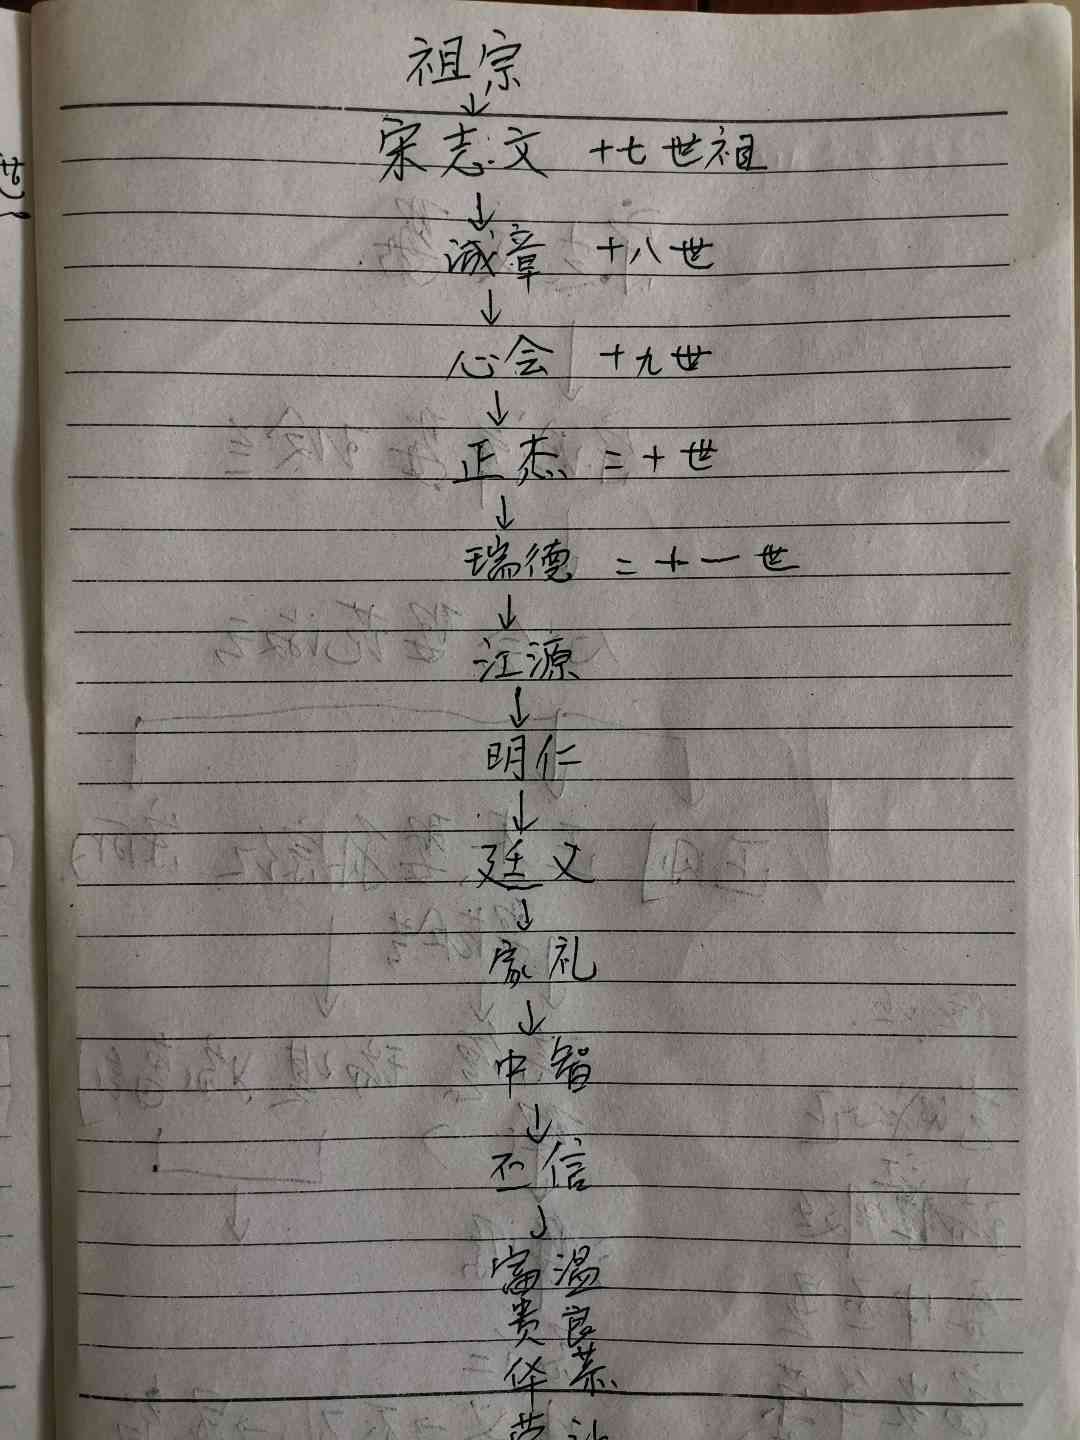 祖宗
↓
宋志文 十七世祖
↓
诚章 十八世
↓
心会 十九世
↓
正杰 二十世
↓
瑞德 二十一世
↓
江源
↓
明仁
↓
廷义
↓
家礼
↓
中智
↓
丕信
↓
富温
贵良
华恭